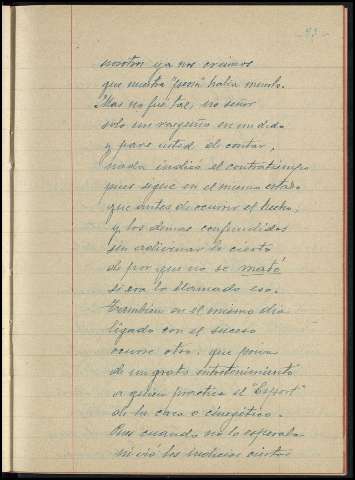 nosotros ya nos creímos
que nuestra "fiera" había muerto.
Mas no fué tal, no señor
solo un rasguño en un dedo
y pare usted de contar,
nada indicó el contratiempo
pues sigue en el mismo estado
que antes de ocurrir el hecho;
y los demas confundidos
sin adivinar lo cierto
de por que no se mató
si era lo llamado eso.
Tambien en el mismo dia
ligado con el suceso
ocurre otro, que priva
de un grato entretenimiento
a quien practica el "Esport"
de la caza o cinegético.
Pues cuando no lo esperaba
ni vió los indicios ciertos